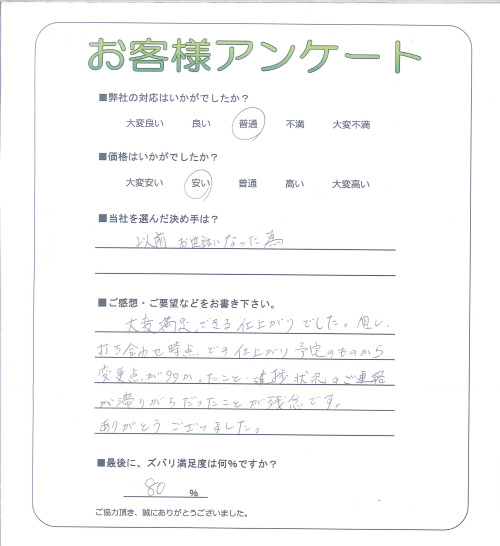 お客様アンケート
■弊社の対応はいかがでしたか？
大変良い 良い 普通 不満 大変不満
■価格はいかがでしたか？
大変安い 安い 普通 高い 大変高い
■当社を選んだ決め手は？
以前 お世話になった為
■ご感想・ご要望などをお書き下さい。
大変満足できる仕上がりでした。但し、
打ち合わせ時点での仕上がり予定のものから
変更点が多かったこと・進捗状況のご連絡
が滞りがちだったことが残念です。
ありがとうございました。
■最後に、ズバリ満足度は何％ですか？
80 ％
ご協力頂き、誠にありがとうございました。